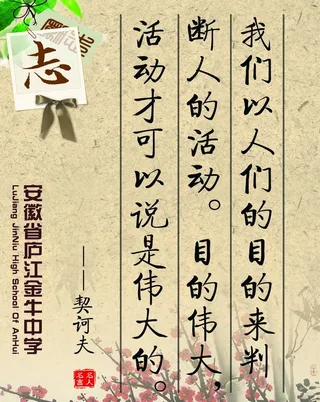 我们以人们的目的来判
断人的活动。目的伟大，
活动才可以说是伟大的。
——契诃夫
名人
名言
志
安徽省庐江金牛中学
LuJiang JinNiu High School Of AnHui